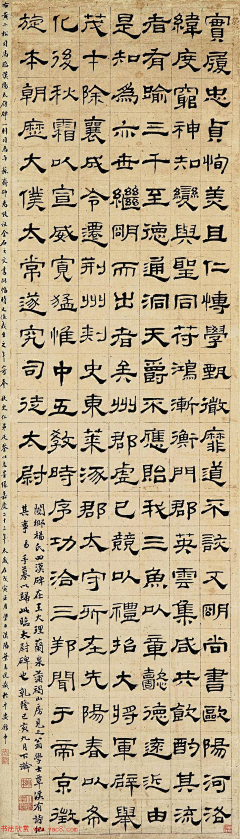 實履忠貞恂美且仁博學甄微靡道不該又明尚書歐陽河洛
緯度窮神知變與聖同符鴻漸衡門郡英雲集咸共其流
者有踰三千至德通洞天爵不應貽我三魚以章懿德遠近由
是知為亦世繼明而出者矣州郡虛己競以禮招大將軍辟舉
茂才除襄成令遷荊州刺史東萊涿郡太守所在先陽春以布
化後秋霜以宣威寬猛惟中五教時序功洽三邦聞于帝京徵
旋本朝歷太僕太常遂究司徒太尉
閿鄉楊氏四漢碑在王大理蘭泉蒲褐山居見之翁學士覃溪有詩紀
其事易手摹以歸此臨太尉碑也乾隆己亥八月